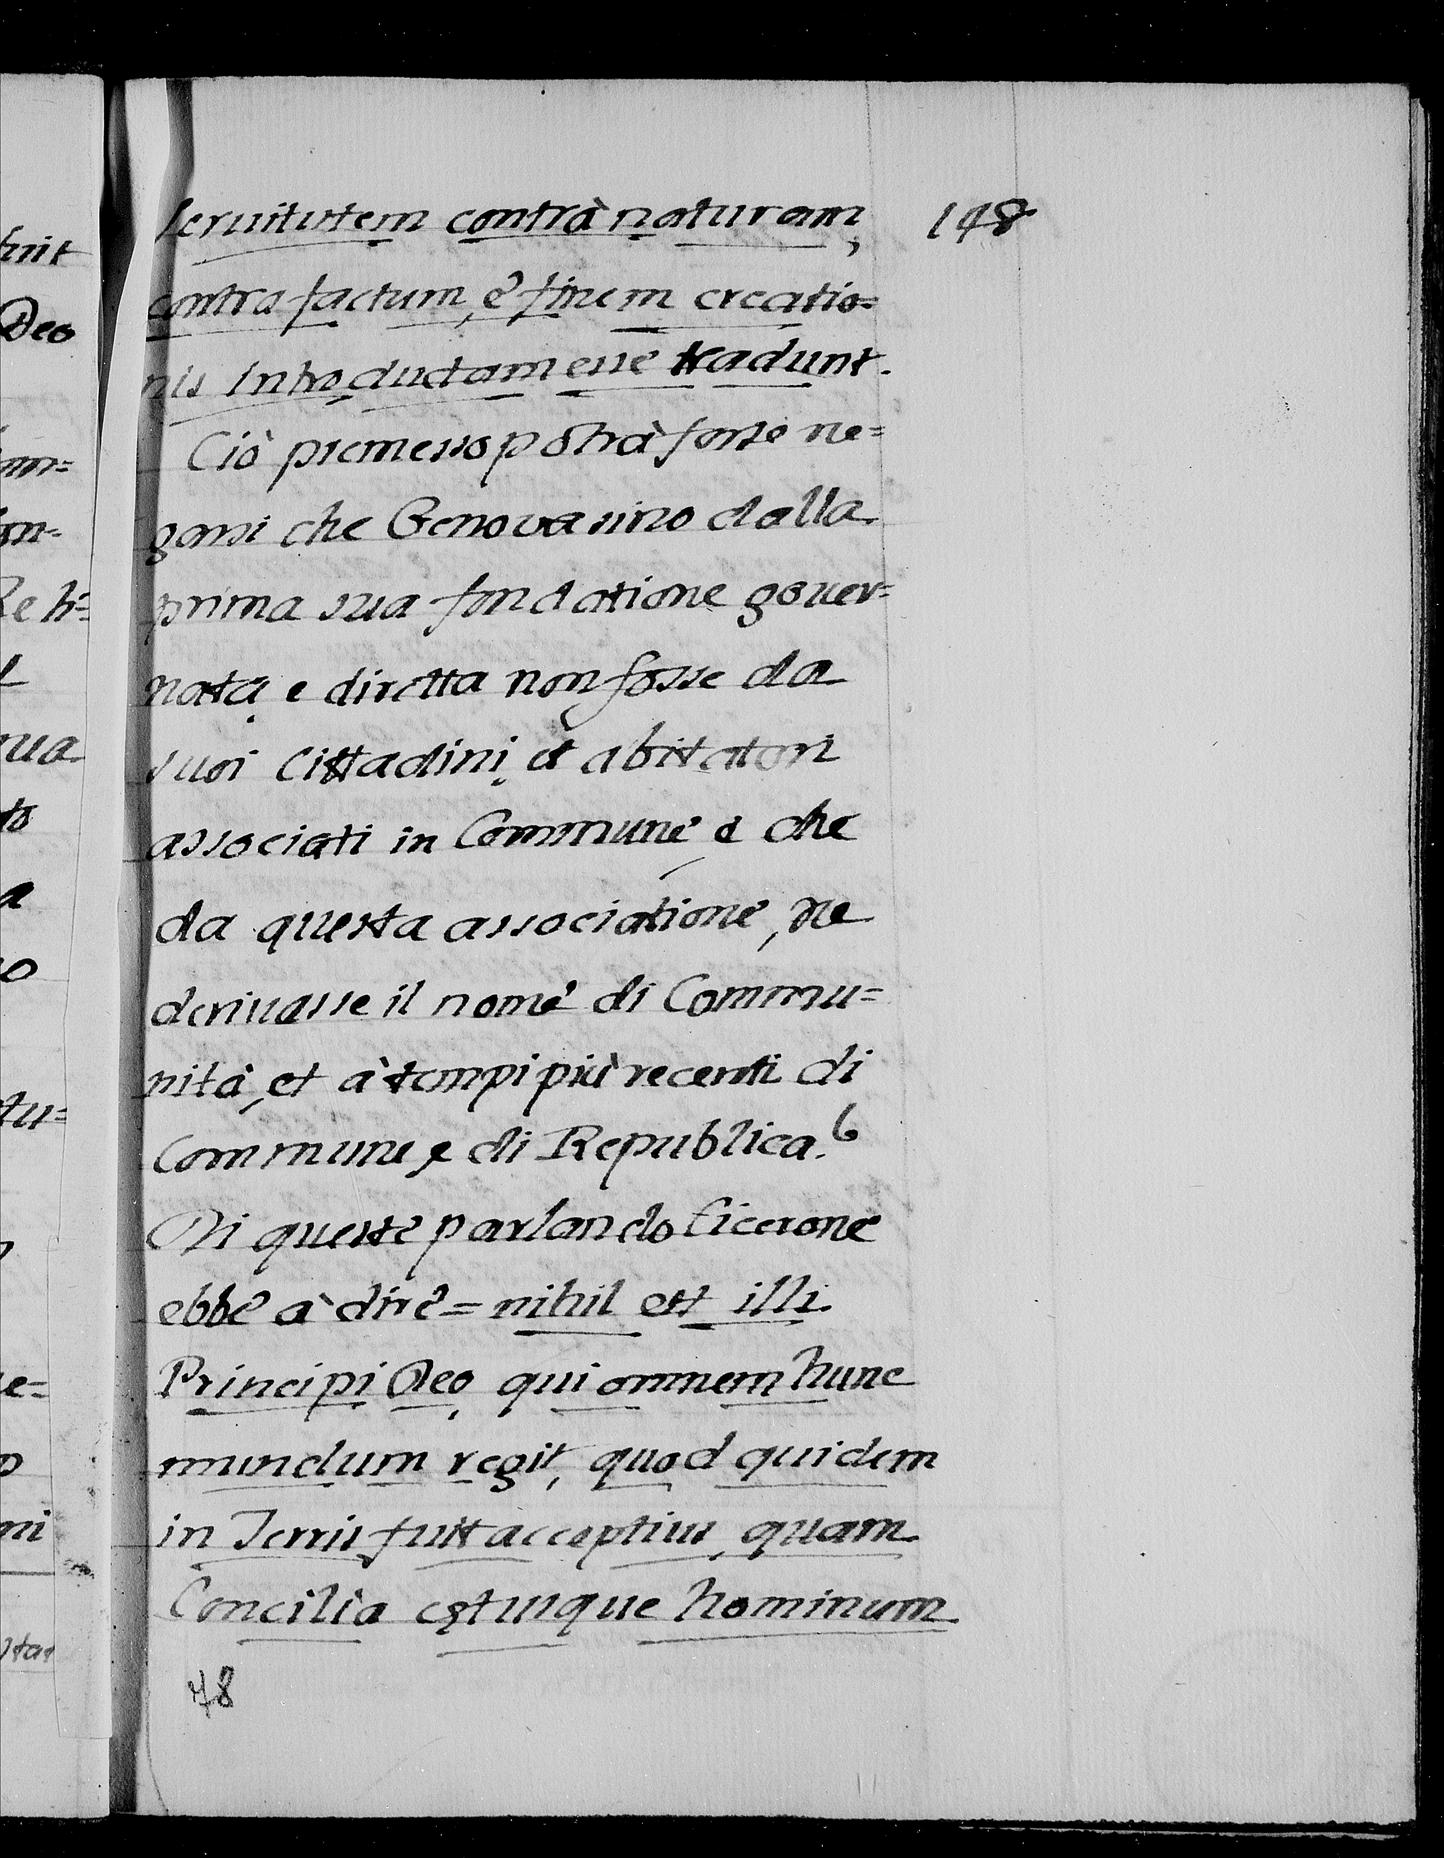 148
seruitutem contrà naturam,
contra factum, è finem creatio=
nis Introductam esse tradunt.
Ciò premesso potrà forse ne=
garsi che Genova sino dalla
prima sua fondatione gouer=
nata e diretta non fosse da
suoi Cittadini, et abitatori
associati in Commune e che
da questa associatione, ne
deriuasse il nome di Commu=
nità, et à tempi più recenti di
Commune e di Republica. 6
Di queste parlando Cicerone
ebbe à dire = nihil est illi
Principi Deo, qui omnem hunc
mundum regit, quod quidem
in Terris fuit acceptius, quam
Concilia cętusque hominum
78